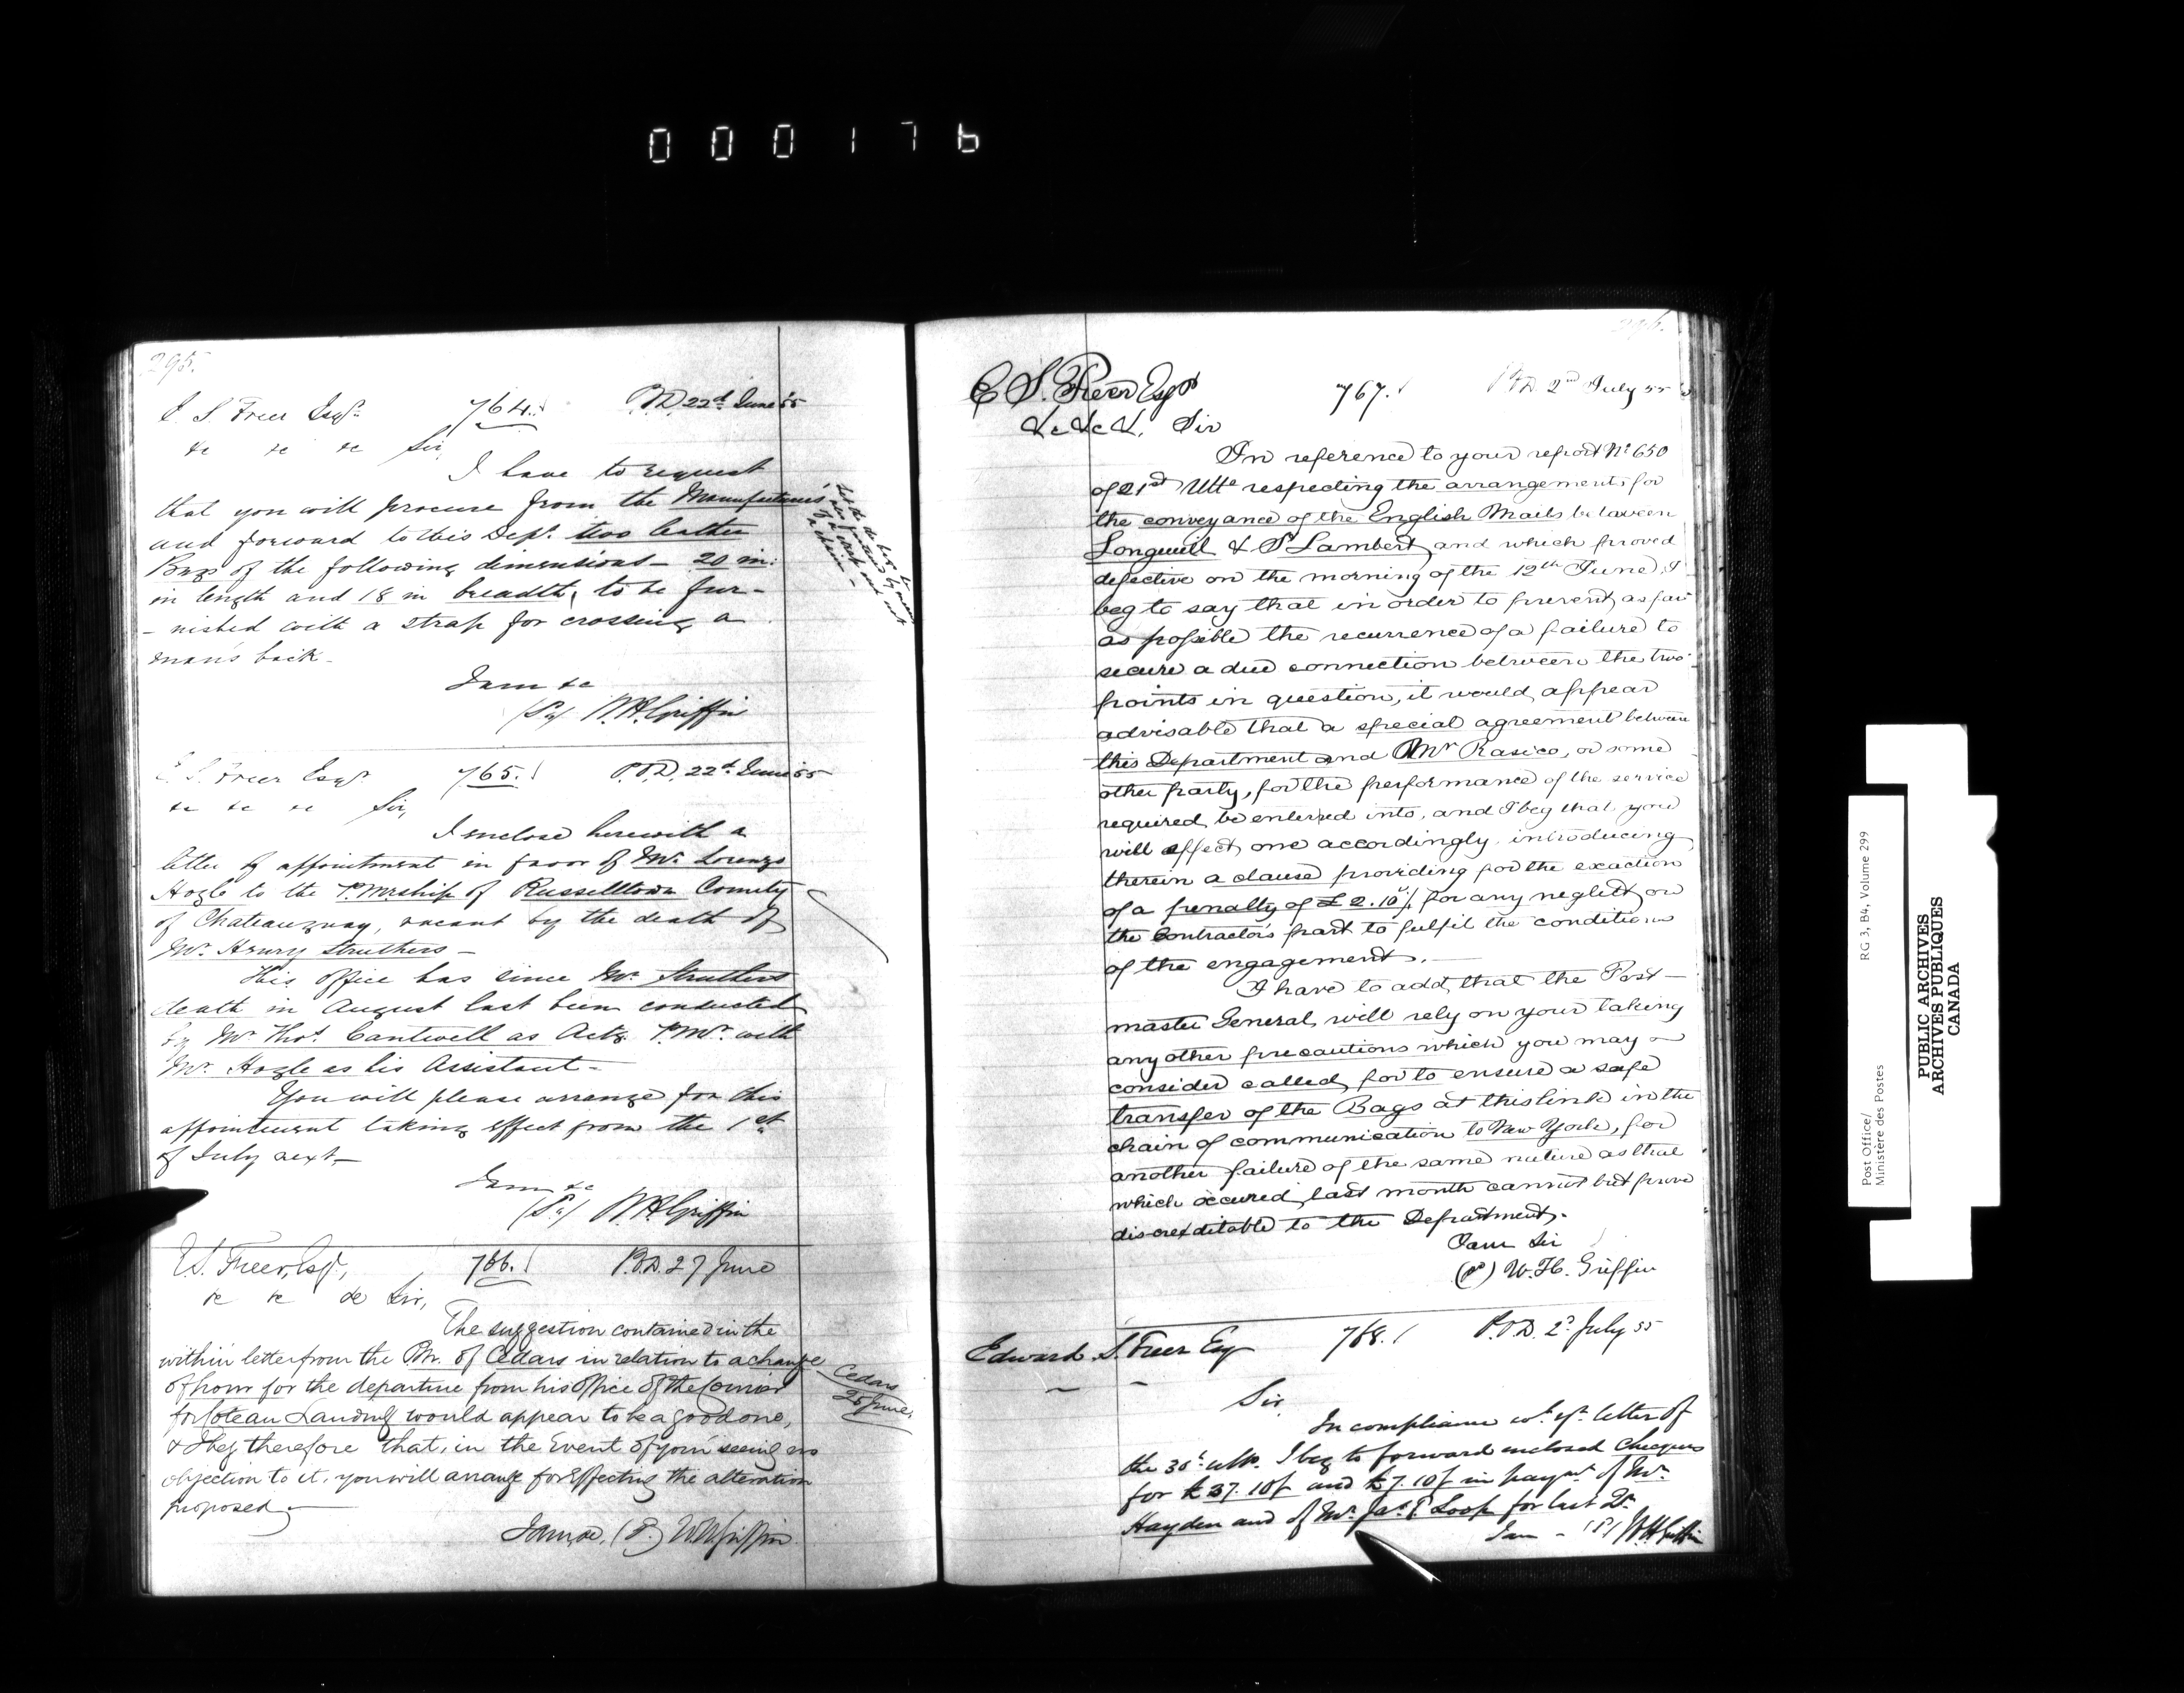 000176
295.
E. S. Freer Esqr. 764. P.O.D. 22d June 55
&c &c &c Sir,
I have to request
that you will procure from the Manufacturers
and forward to this Dept. two leather
Bags of the following dimensions - 20 in:
in length and 18 in breadth, to be fur-
- nished with a strap for crossing a
man's back -
I am &c
W. H. Griffin
E. S. Freer Esqr. 765. P.O.D. 22d June 55
&c &c &c Sir,
I enclose herewith a
letter of appointment in favor of Mr. Lorenzo
Hogle to the P.Mrship of Russelltown County
of Chateauguay, vacant by the death of
Mr. Henry Struthers -
This office has since Mr. Struthers
death in August last been conducted
by Mr. Thos. Cantwell as Actg. P.Mr. with
Mr. Hogle as his Assistant -
You will please arrange for this
appointment taking effect from the 1st
of July next -
I am &c
W. H. Griffin
E. S. Freer, Esqr., 766. P.O.D. 27 June
&c &c &c Sir,
The suggestion contained in the
within letter from the P.M. of Cedars in relation to a change
of hour for the departure from his Office of the Courier
for Coteau Landing would appear to be a good one,
& I beg therefore that, in the Event of your seeing no
objection to it, you will arrange for Effecting the alteration
proposed -
Cedars
25 June.
I am &c, W. H. Griffin
296.
E. S. Freer Esqr 767. P.O.D. 2nd July 55
&c &c &. Sir
In reference to your report No. 650
of 21st Ulto respecting the arrangements for
the conveyance of the English Mails between
Longueuil & St Lambert, and which proved
defective on the morning of the 12th June, I
beg to say that in order to prevent, as far
as possible the recurrence of a failure to
secure a due connection between the two
points in question, it would appear
advisable that a special agreement between
this Department and Mr Rasico, or some
other party, for the performance of the service
required, be entered into, and I beg that you
will effect one accordingly, introducing
therein a clause providing for the exaction
of a penalty of £2.10/ for any neglect on
the Contractor's part to fulfil the conditions
of the engagement. -
I have to add, that the Post -
master General, will rely on your taking
any other precautions which you may
consider called for to ensure a safe
transfer of the Bags at this link in the
chain of communication to New York, for
another failure of the same nature as that
which occured, last month cannot but prove
discreditable to the Department. -
I am Sir
W. H. Griffin
Edward S. Freer Esq 768. P.O.D. 2d July 55
Sir,
In compliance wt. yr. letter of
the 30t. ulto. I beg to forward enclosed Cheques
for £37.10/ and £7.10/ in payt. of Mr.
Hayden and of Mr. Jas. P. Loop for last Qr.
I am - W. H. Griffin
Post Office/
Ministère des Postes
RG 3, B4, Volume 299
PUBLIC ARCHIVES
ARCHIVES PUBLIQUES
CANADA